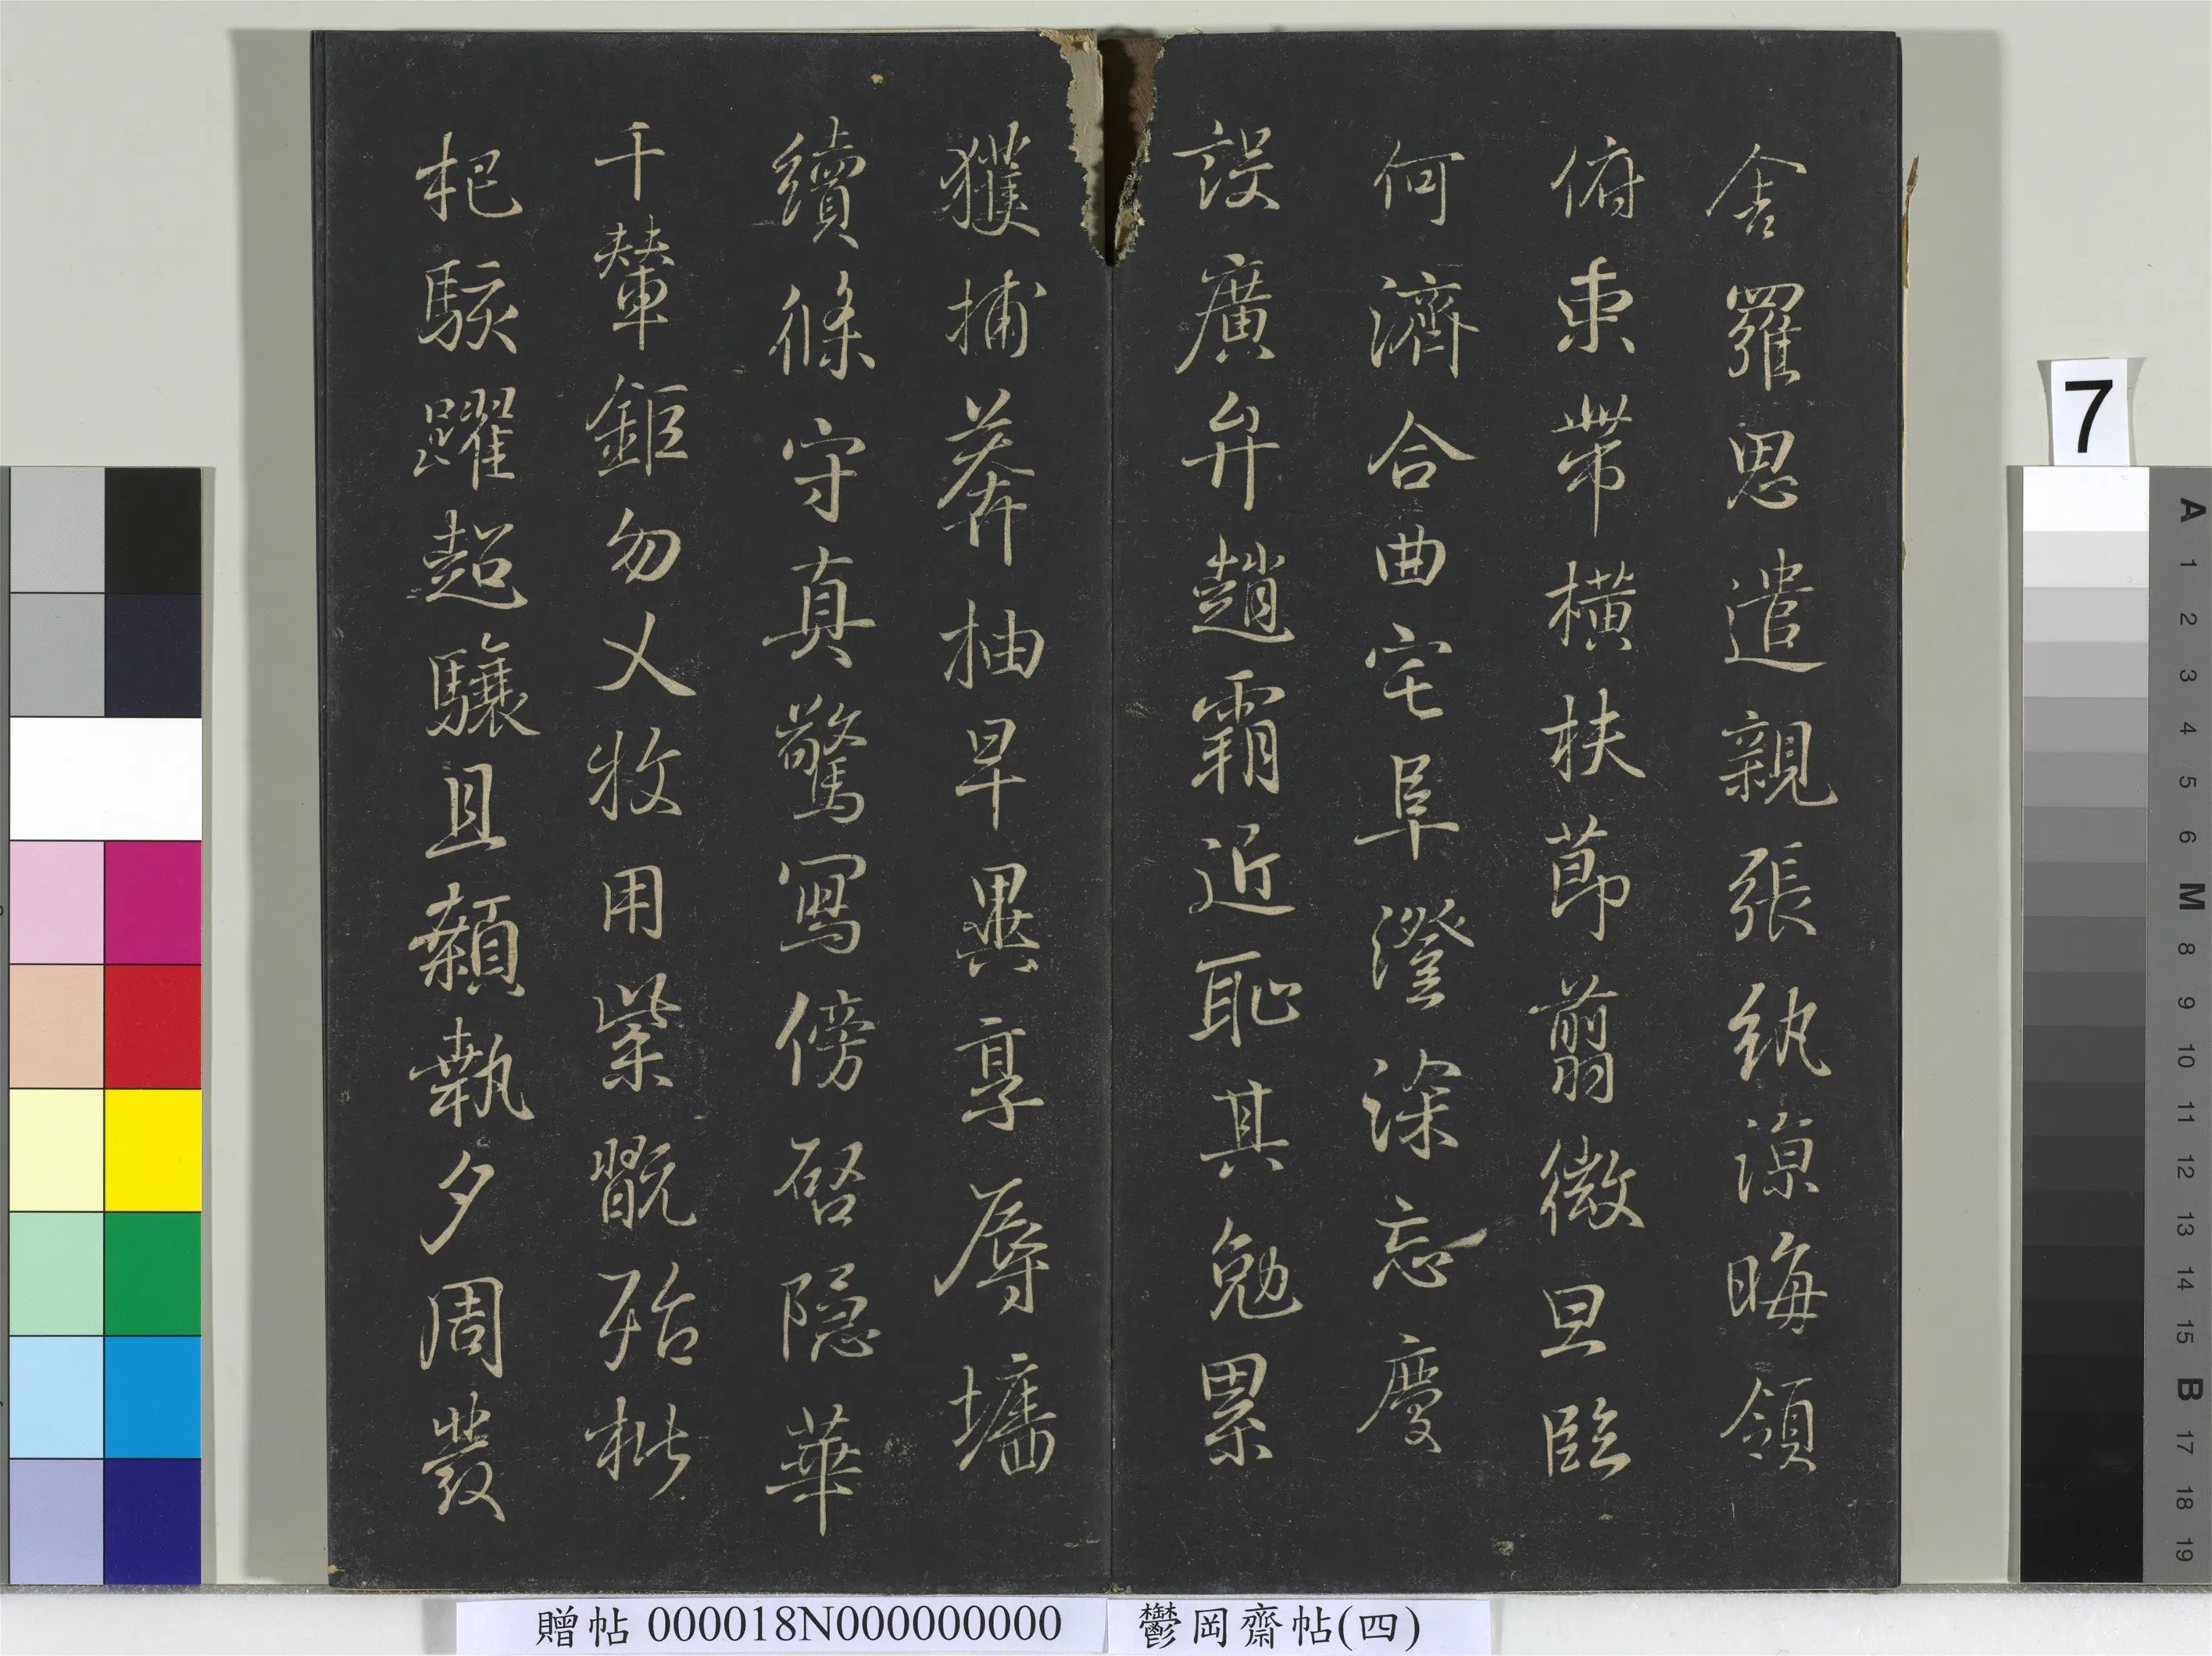 舍羅思遣親張紈涼晦領
俯束帶橫扶莭翦微旦臨
何濟合曲宅阜澄深忘慶
設廣弁趙霸近恥其勉累
獲捕莽抽早異享辱墻
續條守真驚寫傍啓隐華
千輦鉅勿乂牧用紫翫殆枇
杷駭躍超驤且顙執夕周發
贈帖 000018N000000000
鬱岡齋帖(四)
7
A
1
2
3
4
5
6
M
8
9
10
11
12
13
14
15
B
17
18
19